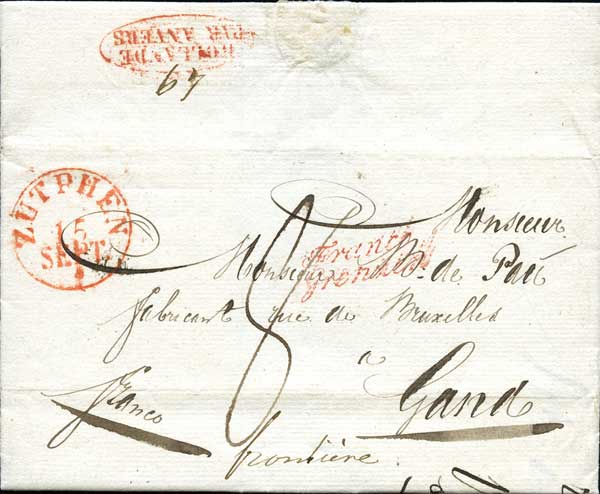 HOLLANDE
PAR ANVERS
67
ZUTPHEN
15
SEPT
Monsieur
Franco
frontière
Monsieur de Paü
fabricant rue de Bruxelles
8
à
Gand
franco
frontière